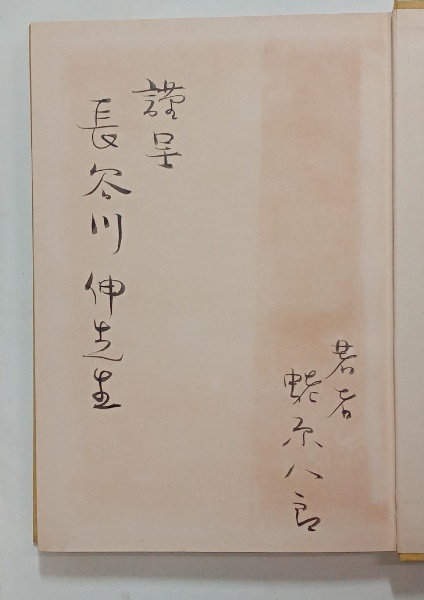 謹呈
長谷川伸先生
著者
蛯原八郎